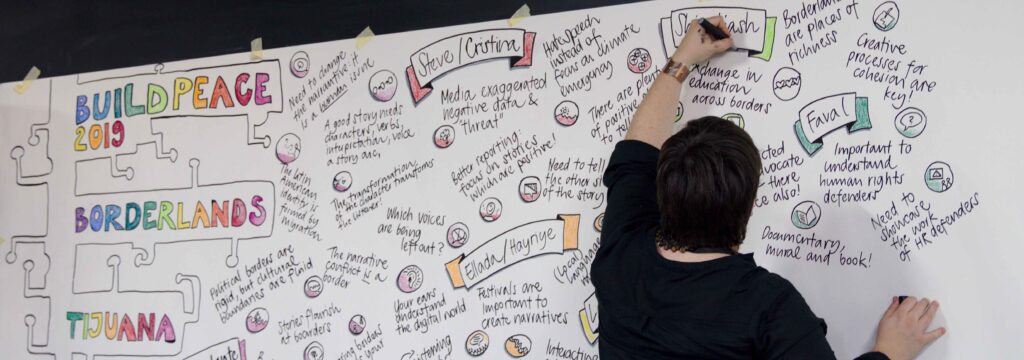 BUILD PEACE
2019
BORDERLANDS
TIJUANA
Need to change
the
narrative: it
is a
human issue
The latin
American
identity is
formed by
migration
Political borders are
rigid, but cultural
boundaries are fluid
Stories flourish
at boarders
Steve/Cristina
A good story needs
characters, verbs,
interpretation, voice
a story arc,
The transformation
of the character transforms
the listener!
Which voices
are being
left out?
The narrative
conflict is a
border
Your ears
understand
the digital world
Media exaggerated
negative data &
"threat"
Better reporting:
focus on stories
which are positive!
Hate speech
instead of
focus on climate
emergency
There are
of positive
to tell
Need to tell
the other
of the story
Ellada/Hayriye
Festivals are
important to
create narratives
Local
Interacting
Exchange in
education
across borders
Borderlands
are places of
richness
Creative
processes for
cohesion are
key!
Faval
Important to
understand
human rights
defenders
advocate
there
also!
Documentary,
mural and book!
Need to
showcase
the work
of
HR defenders